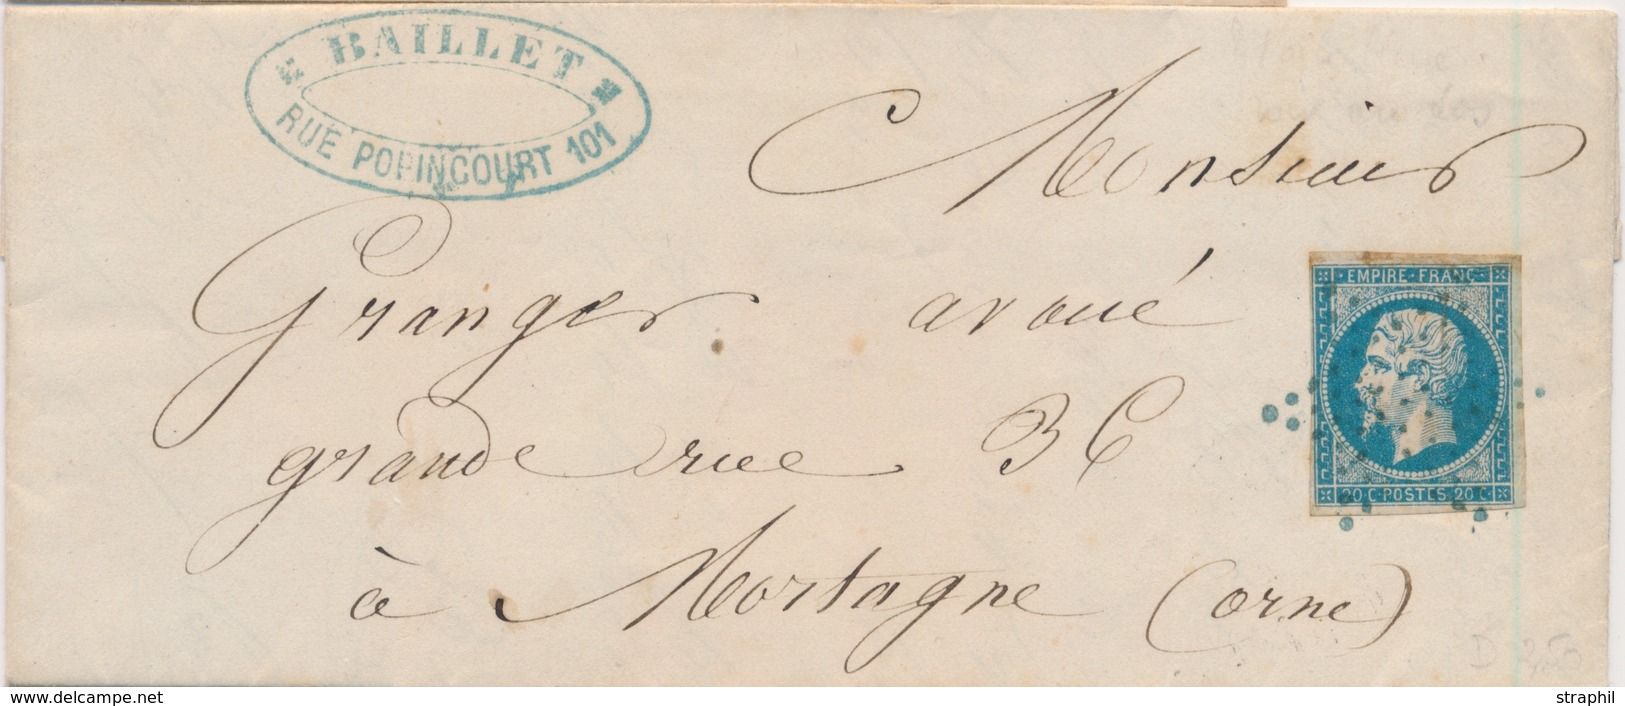 BAILLET
RUE POPINCOURT 101
Monsieur
Granger avoué
grande rue 36
à Mortagne (orne)
EMPIRE FRANC
20 C POSTES 20 C
www.delcampe.net
straphil